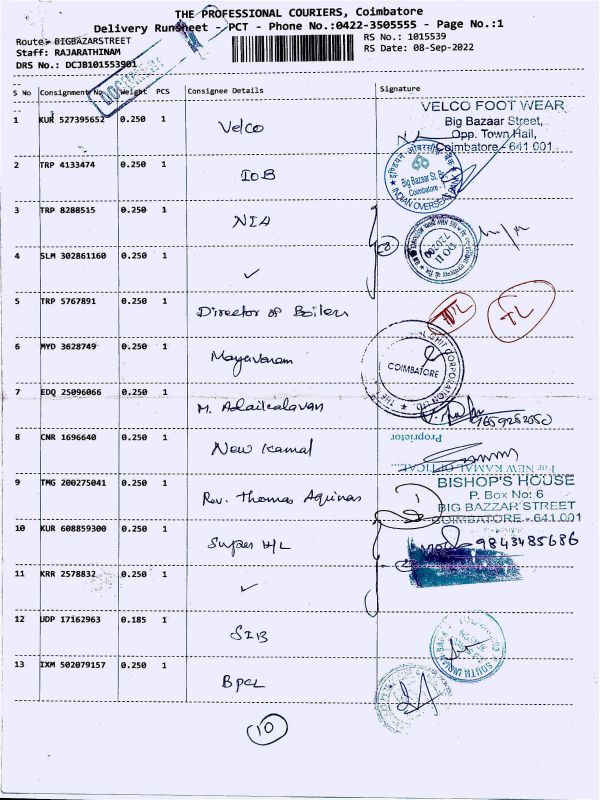 THE PROFESSIONAL COURIERS, Coimbatore
Delivery Runsheet - PCT - Phone No.:0422-3505555 - Page No.:1
Route: BIGBAZARSTREET
RS No.: 1015539
Staff: RAJARATHINAM
RS Date: 08-Sep-2022
DRS No.: DCJB101553901
S No Consignment No Weight PCS Consignee Details Signature
1 KUR 527395652 0.250 1 Velco
VELCO FOOT WEAR
Big Bazaar Street,
Opp. Town Hall,
Coimbatore - 641 001
2 TRP 4133474 0.250 1 IOB
Big Bazaar St. Br.
Coimbatore
INDIAN OVERSEAS
3 TRP 8288515 0.250 1 NIA
4 SLM 302861160 0.250 1 ✓
5 TRP 5767891 0.250 1 Director of Boilers
TL
6 MYD 3628749 0.250 1 Mayavaram
CHIT CORPORATION LTD.
COIMBATORE
7 EDQ 25096066 0.250 1 M. Adaikalavan
8 CNR 1696640 0.250 1 New Kamal
Proprietor
For NEW KAMAL OPTICAL
9 TMG 200275041 0.250 1 Rev. Thomas Aquinas
BISHOP'S HOUSE
P. Box No: 6
BIG BAZZAR STREET
COIMBATORE - 641 001
10 KUR 608859300 0.250 1 Super H/L
9843485686
11 KRR 2578832 0.250 1 ✓
12 UDP 17162963 0.185 1 SIB
SOUTH INDIAN BANK
13 IXM 502079157 0.250 1 BPCL
10